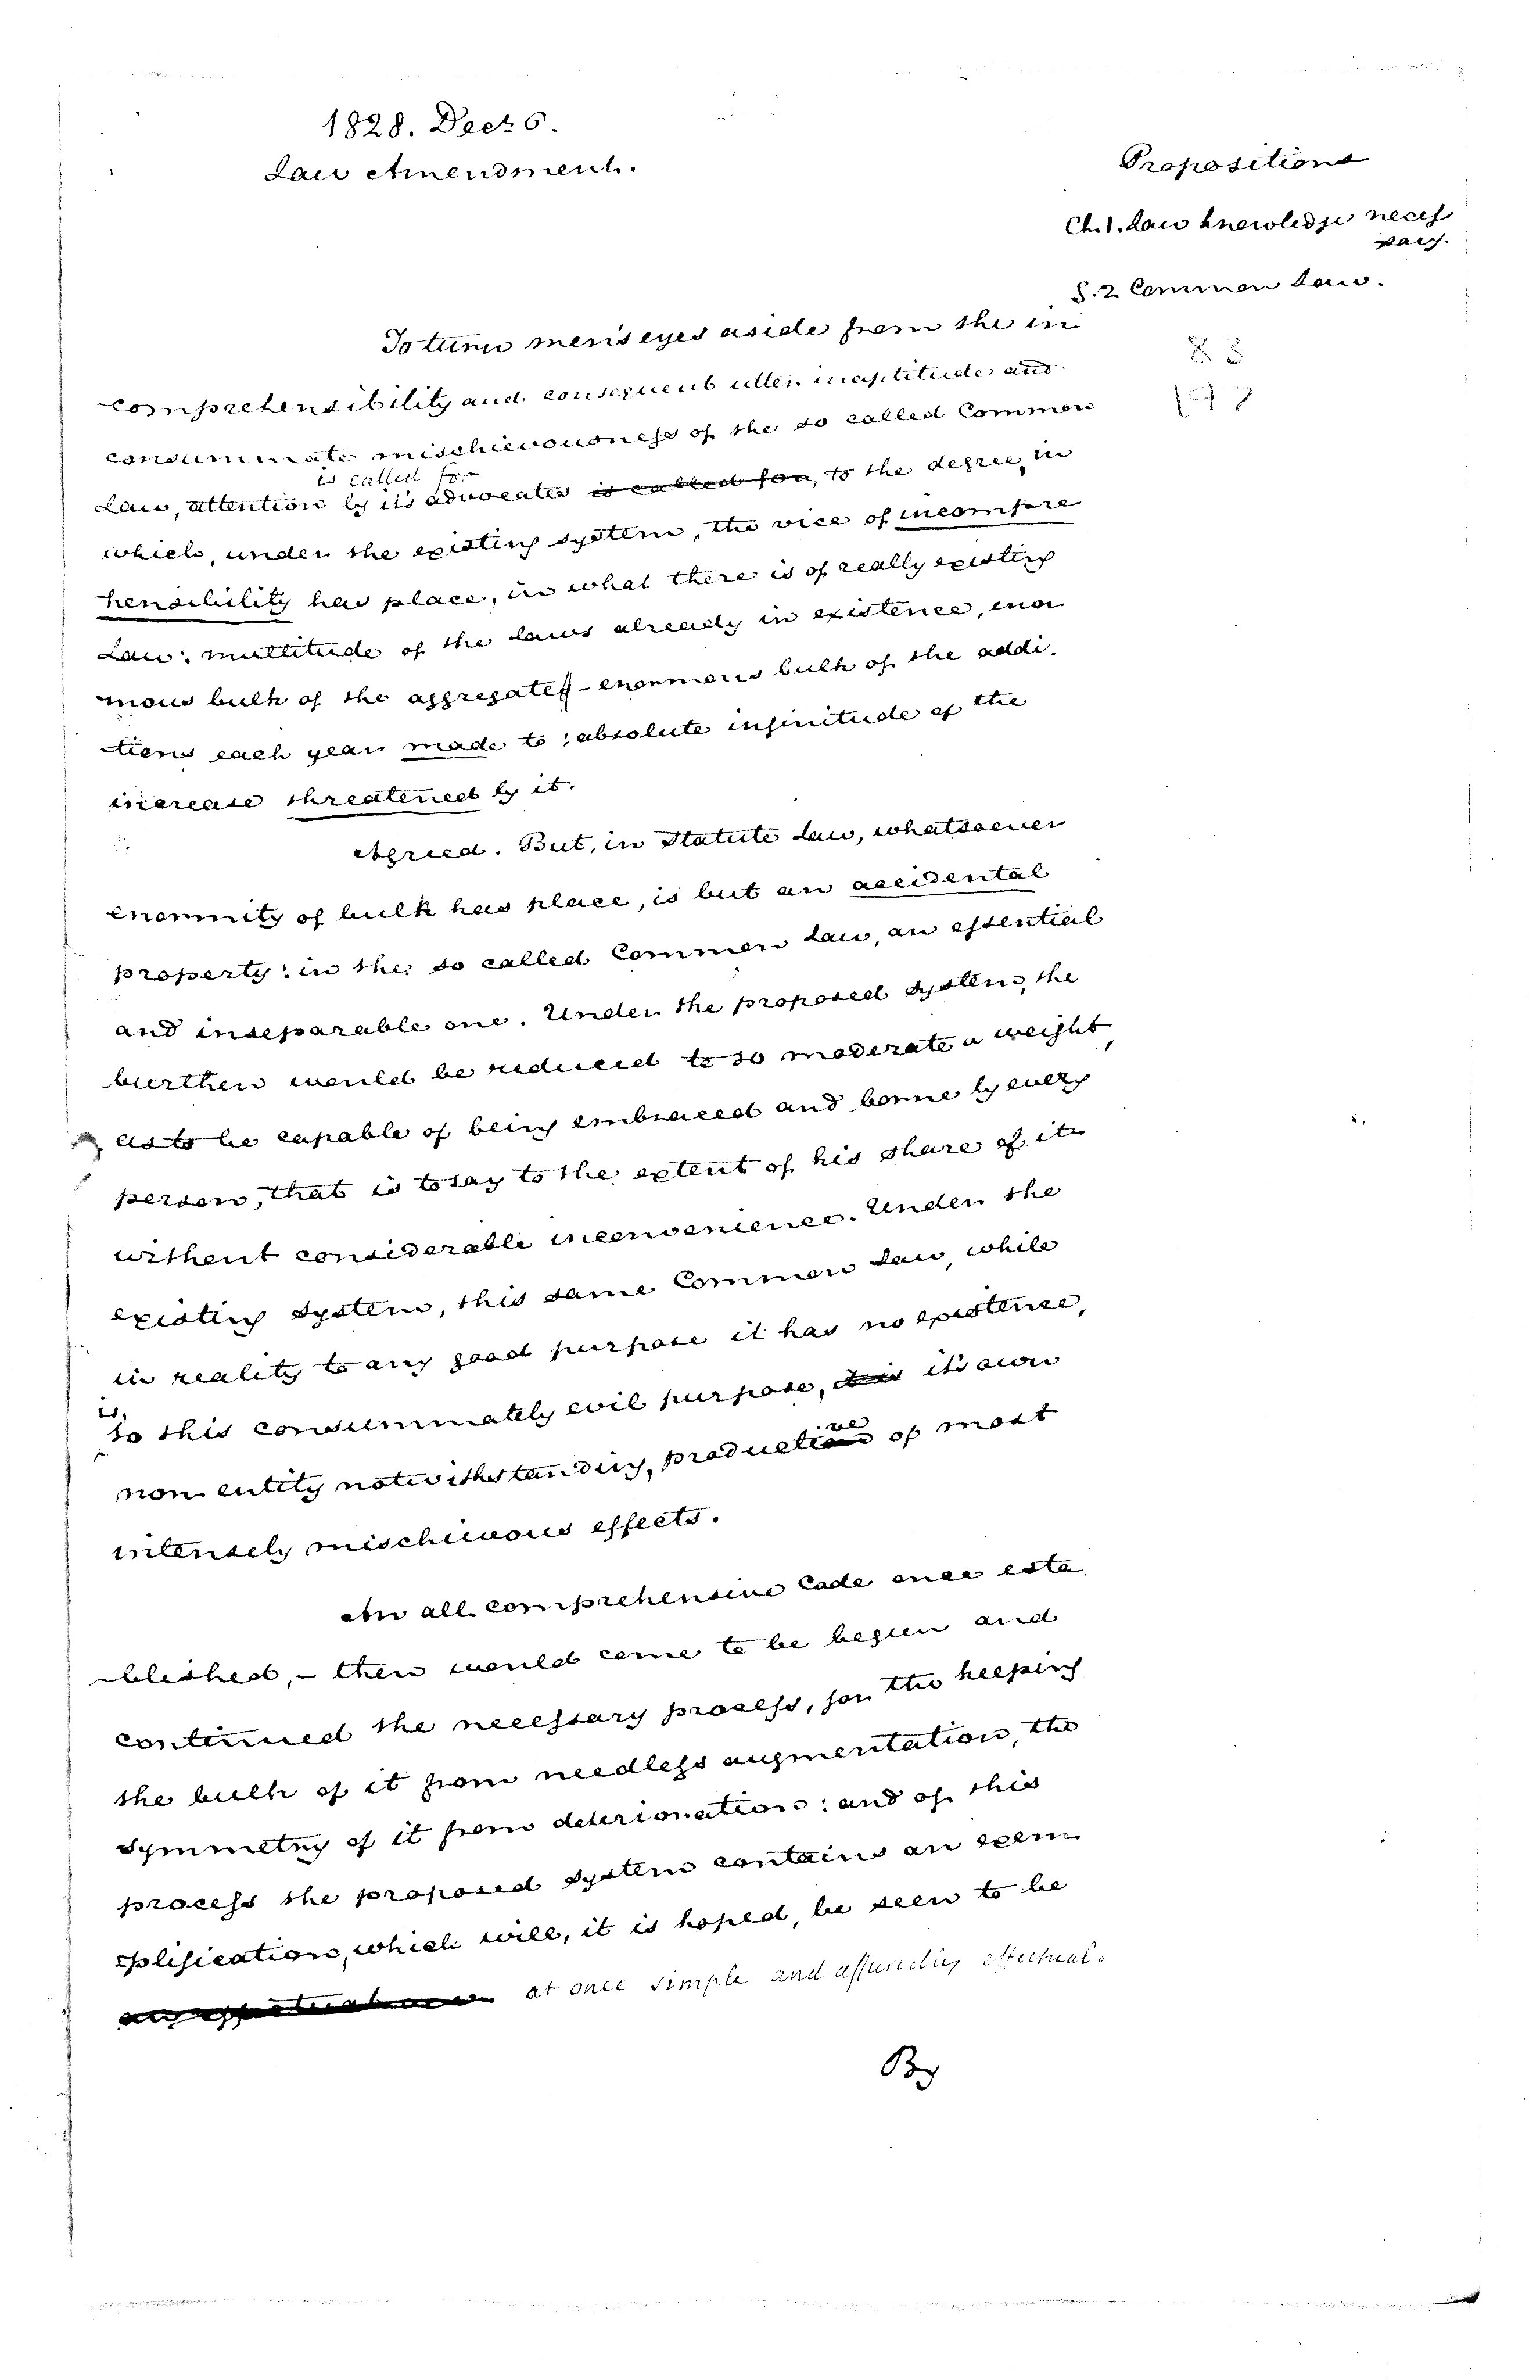 1828. Decr 6.
Law Amendment.
Propositions
Ch. 1. Law knowledge neces
sary.
S. 2 Common Law.
83
To turn men's eyes aside from the in
comprehensibility and consequent utter inaptitude and
consummate mischievousness of the so called Common
is called for
Law, attention by it's advocates is called for, to the degree in
which, under the existing system, the vice of incompre
hensibility has place, in what there is of really existing
Law: multitude of the laws already in existence, enor
mous bulk of the aggregate - enormous bulk of the addi-
tions each year made to; absolute infinitude of the
increase threatened by it.
Agreed. But, in Statute Law, whatsoever
enormity of bulk has place, is but an accidental
property: in the so called Common Law, an essential
and inseparable one. Under the proposed system, the
burthen would be reduced to so moderate a weight,
as to be capable of being embraced and borne by every
person, that is to say to the extent of his share of it
without considerable inconvenience. Under the
existing system, this same Common Law, while
in reality to any good purpose it has no existence,
is,
to this consummately evil purpose, it's own
ve
non-entity notwithstanding, production of most
intensely mischievous effects.
An all-comprehensive Code once esta
blished, - then would come to be begun and
continued the necessary process, for the keeping
the bulk of it from needless augmentation, the
symmetry of it from deterioration: and of this
process the proposed system contains an exem
plification, which will, it is hoped, be seen to be
an effectual one at once simple and assuredly effectual.
By